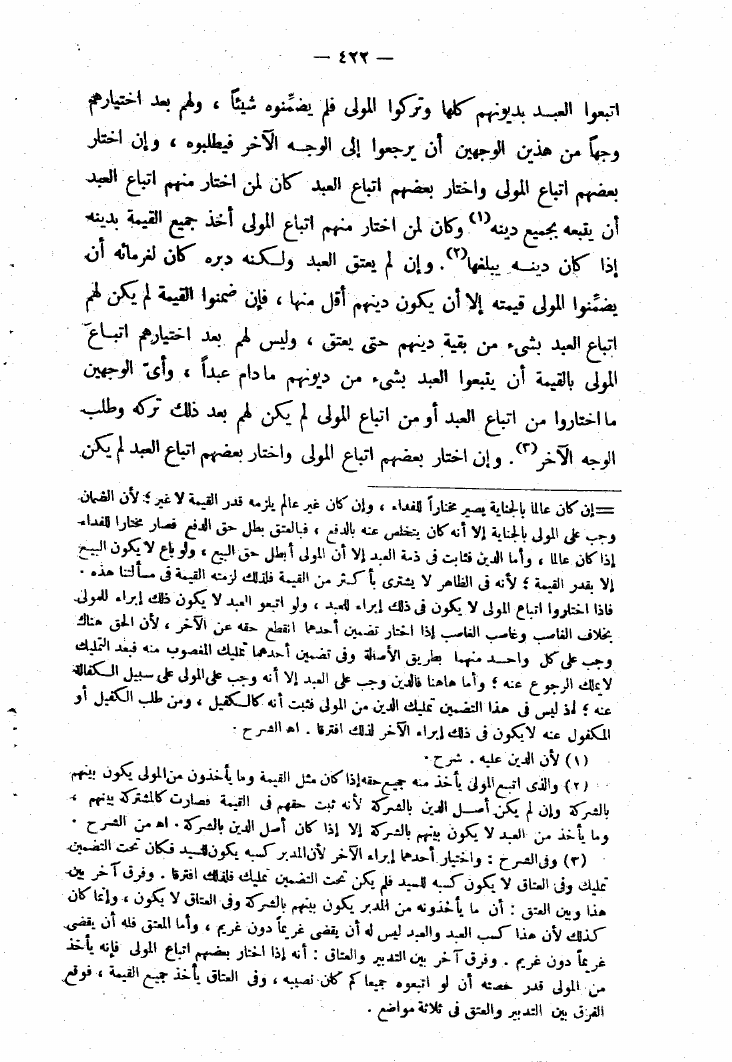 — ٤٢٢ —
اتبعوا العبـد بديونهم كلها وتركوا المولى فلم يضمِّنوه شيئاً ، ولهم بعد اختيارهم
وجهاً من هذين الوجهين أن يرجعوا إلى الوجـه الآخر فيطلبوه ، وإن اختار
بعضهم اتباع المولى واختار بعضهم اتباع العبد كان لمن اختار منهم اتباع العبد
أن يتبعه بجميع دينه(١) وكان لمن اختار منهم اتباع المولى أخذ جميع القيمة بدينه
إذا كان دينـه يبلغها(٢). وإن لم يعتق العبد ولـكنه دبره كان لغرمائه أن
يضمِّنوا المولى قيمته إلا أن يكون دينهم أقل منها ، فإن ضمنوا القيمة لم يكن لهم
اتباع العبد بشىء من بقية دينهم حتى يعتق ، وليس لهم بعد اختيارهم اتبـاع
المولى بالقيمة أن يتبعوا العبد بشىء من ديونهم مادام عبداً ، وأىّ الوجهين
ما اختاروا من اتباع العبد أو من اتباع المولى لم يكن لهم بعد ذلك تركه وطلب
الوجه الآخر(٣). وإن اختار بعضهم اتباع المولى واختار بعضهم اتباع العبد لم يكن
=إن كان عالما بالجناية يصير مختاراً للفداء ، وإن كان غير عالم يلزمه قدر القيمة لا غير ؛ لأن الضمان
وجب على المولى بالجناية إلا أنه كان يتخلص عنه بالدفع ، فبالعتق بطل حق الدفع فصار مختارا للفداء
إذا كان عالما ، وأما الدين فثابت فى ذمة العبد إلا أن المولى أبطل حق البيع ، ولو باع لا يكون البيع
إلا بقدر القيمة ؛ لأنه فى الظاهر لا يشترى بأكثر من القيمة فلذلك لزمته القيمة فى مسألتنا هذه .
فاذا اختاروا اتباع المولى لا يكون فى ذلك إبراء للعبد ، ولو اتبعو العبد لا يكون ذلك إبراء للمولى
بخلاف الغاصب وغاصب الغاصب إذا اختار تضمين أحدهما انقطع حقه عن الآخر ، لأن الحق هناك
وجب على كل واحـد منهما بطريق الأصالة وفى تضمين أحدهما تمليك المغصوب منه فبعد التمليك
لا يملك الرجوع عنه ؛ وأما هاهنا فالدين وجب على العبد إلا أنه وجب على المولى على سبيل الـكفالة
عنه ؛ إذ ليس فى هذا التضمين تمليك الدين من المولى فثبت أنه كالـكفيل ، ومن طلب الكفيل أو
المكفول عنه لا يكون فى ذلك إبراء الآخر لذلك افترقا . اه الشرح .
(١) لأن الدين عليه . شرح .
(٢) والذى اتبع المولى يأخذ منه جميع حقه إذا كان مثل القيمة وما يأخذون من المولى يكون بينهم
بالشركة وإن لم يكن أصـل الدين بالشركة لأنه ثبت حقهم فى القيمة فصارت كالمشتركة بينهم ،
وما يأخذ من العبد لا يكون بينهم بالشركة إلا إذا كان أصل الدين بالشركة . اه من الشرح .
(٣) وفى الشرح : واختيار أحدهما إبراء الآخر لأن المدبر كسبه يكون للسيد فكان تحت التضمين
تمليك وفى العتاق لا يكون كسبه للسيد فلم يكن تحت التضمين تمليك فلذلك افترقا . وفرق آخر بين
هذا وبين العتق : أن ما يأخذونه من المدبر يكون بينهم بالشركة وفى العتاق لا يكون ، وإنما كان
كذلك لأن هذا كسب العبد والعبد ليس له أن يقضى غريماً دون غريم ، وأما المعتق فله أن يقضى
غريماً دون غريم . وفرق آخر بين التدبير والعتاق : أنه إذا اختار بعضهم اتباع المولى فإنه يأخذ
من المولى قدر حصته أن لو اتبعوه جميعا كم كان نصيبه ، وفى العتاق يأخذ جميع القيمة ، فوقع
الفرق بين التدبير والعتق فى ثلاثة مواضع .